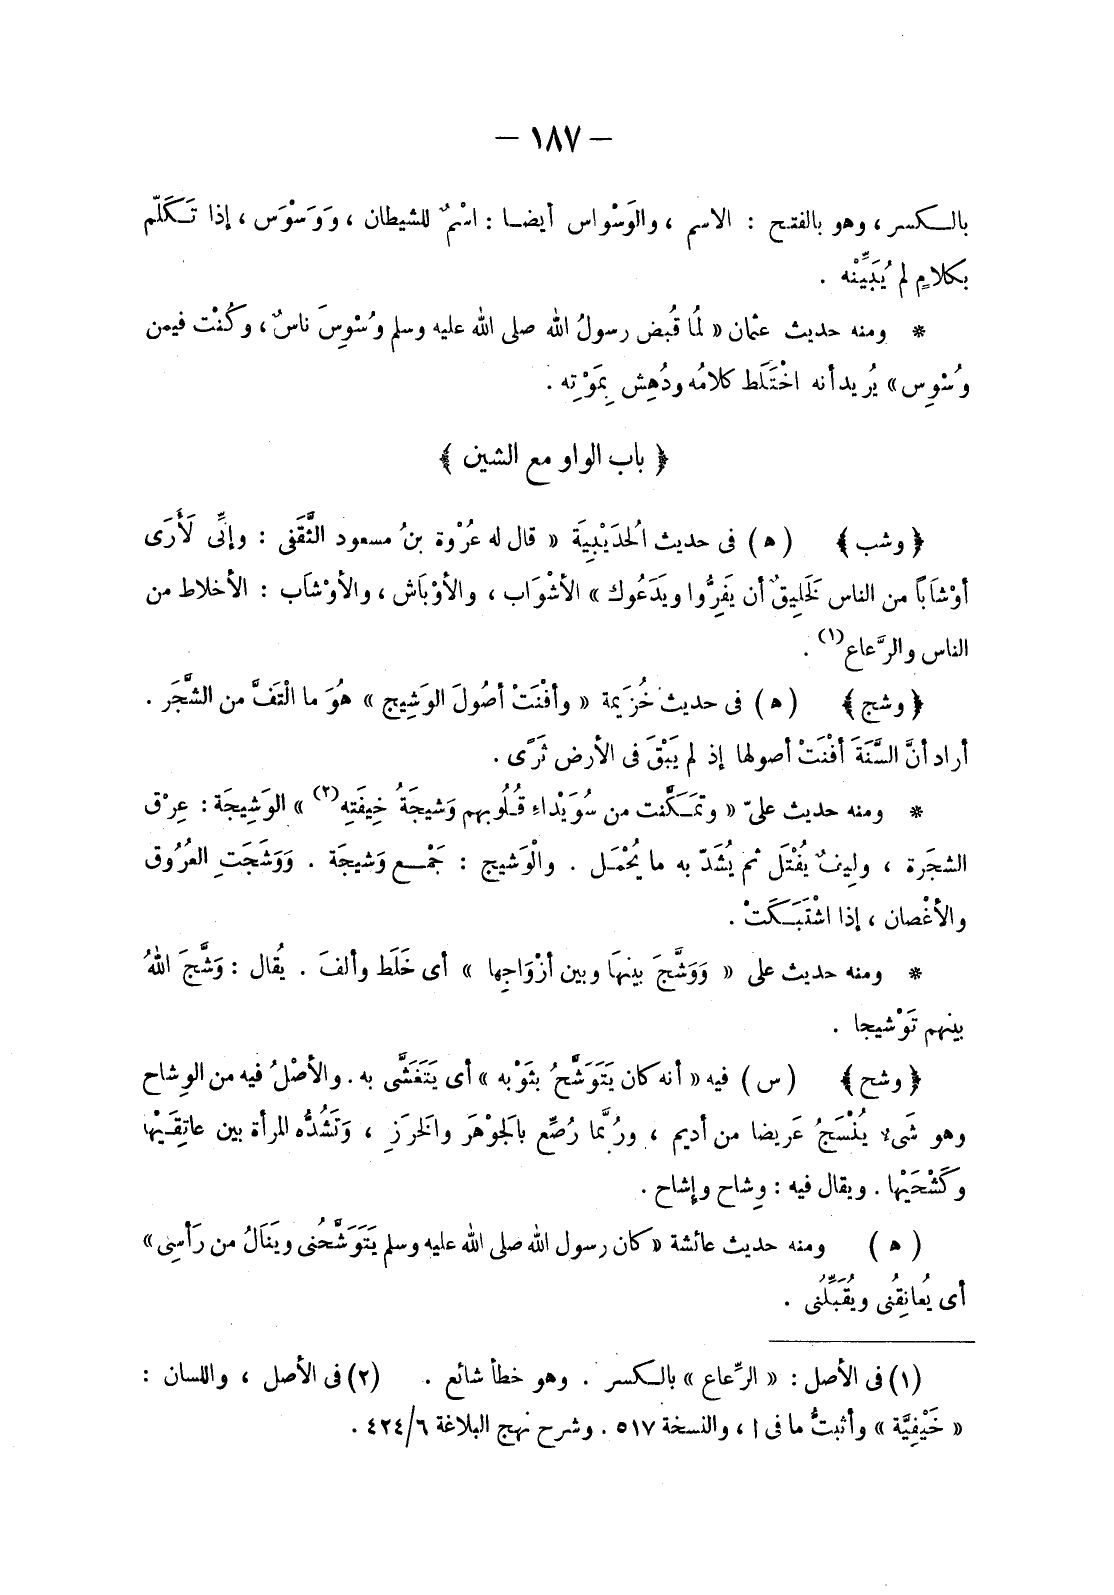 — ١٨٧ —
بالكسر ، وهو بالفتح : الاسم ، والوَسْواس أيضا : اسْمٌ للشيطان ، وَوَسْوَس ، إذا تَكَلّم
بكلامٍ لم يُبَيِّنْه .
* ومنه حديث عثمان « لمَّا قُبِض رسولُ الله صلى الله عليه وسلم وُسْوِسَ ناسٌ ، وكُنْت فيمن
وُسْوِس » يُريد أنه اخْتَلَط كلامُه ودُهِش بِمَوْتِه .
﴿ باب الواو مع الشين ﴾
﴿ وشب ﴾ ( ه ) فى حديث الُحدَيْبِيَة « قال له عُرْوة بنُ مسعود الثَّقَفى : وإنِّى لَأَرَى
أوْشَاباً من الناس لَخَلِيقٌ أن يَفِرُّوا ويَدَعُوك » الأشْوَاب ، والأوْبَاش ، والأوْشَاب : الأخلاط من
الناس والرَّعاع (١) .
﴿ وشج ﴾ ( ه ) فى حديث خُزَيمة « وأفْنَتْ أصُولَ الوَشِيج » هُوَ ما الْتَفَّ من الشَّجَر .
أراد أنَّ السَّنَةَ أفْنَتْ أصولها إذ لم يَبْقَ فى الأرض ثَرًى .
* ومنه حديث علىّ « وتمَكَّنت من سُوَيْداء قُلُوبهم وَشيجَةُ خِيفَتِه (٢) » الوَشِيجَة : عِرْق
الشجَرة ، ولِيفٌ يُفْتَل ثم يُشَدّ به ما يُحْمَل . والْوَشيج : جَمْع وَشيجَة . وَوَشَجَتِ العُرُوق
والأغْصان ، إذا اشْتَبَكَتْ .
* ومنه حديث على « وَوَشَّجَ بينهَا وبين أزْوَاجِها » أى خَلَط وألفَ . يُقال : وَشَّجَ اللهُ
بينهم تَوْشيجا .
﴿ وشح ﴾ ( س ) فيه « أنه كان يَتَوَشَّحُ بثَوْبه » أى يَتَغَشَّى به . والأصْلُ فيه من الوِشاح
وهو شَىء يُنْسَجُ عَريضا من أديم ، ورُبَّما رُصِّع بالَجوْهَر والَخرَزِ ، وَتَشُدُّه المرأة بين عاتِقَيْها
وكَشْحَيْها . ويقال فيه : وِشاح وإشاح .
( ه ) ومنه حديث عائشة « كان رسول الله صلى الله عليه وسلم يَتَوَشَّحُنى ويَنَالُ من رَأسِى »
أى يُعانِقُنى ويُقَبِّلُنى .
(١) فى الأصل : « الرِّعاع » بالكسر . وهو خطأ شائع . (٢) فى الأصل ، واللسان :
« خَيْفِيَّة » وأثبتُّ ما فى ا ، والنسخة ٥١٧ . وشرح نهج البلاغة ٦/٤٢٤ .